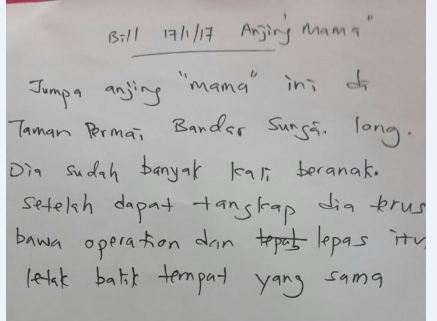 Bill 17/1/17 Anjing Mama"
Jumpa anjing "mama" ini di
Taman Permai, Bandar Sungai long.
Dia sudah banyak kali beranak.
setelah dapat tangkap dia terus
bawa operation dan lepas itu
letak balik tempat yang sama